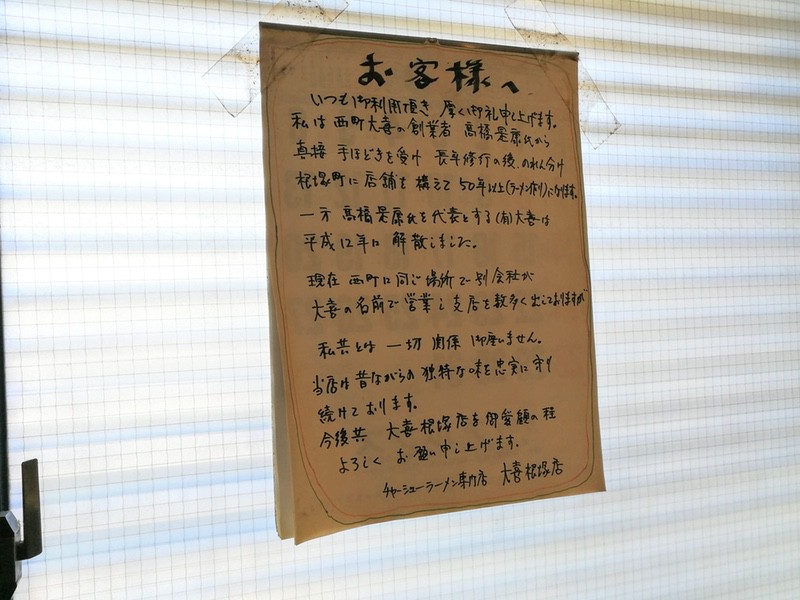 お客様へ
いつも御利用頂き 厚く御礼申し上げます。
私は 西町大喜の創業者 高橋是康氏から
真接 手ほどきを受け 長年修行の後、のれん分け
根塚町に店舗を構えて 50年以上(ラーメン作り)になります。
一方 高橋是康氏を代表とする(有)大喜は
平成12年に 解散しました。
現在 西町に同じ場所で別会社が
大喜の名前で営業し支店を数多く出しておりますが
私共とは 一切 関係 御座いません。
当店は昔ながらの独特な味を忠実に守り
続けております。
今後共 大喜根塚店を御愛顧の程
よろしく お願い申し上げます。
チャーシューラーメン専門店 大喜根塚店